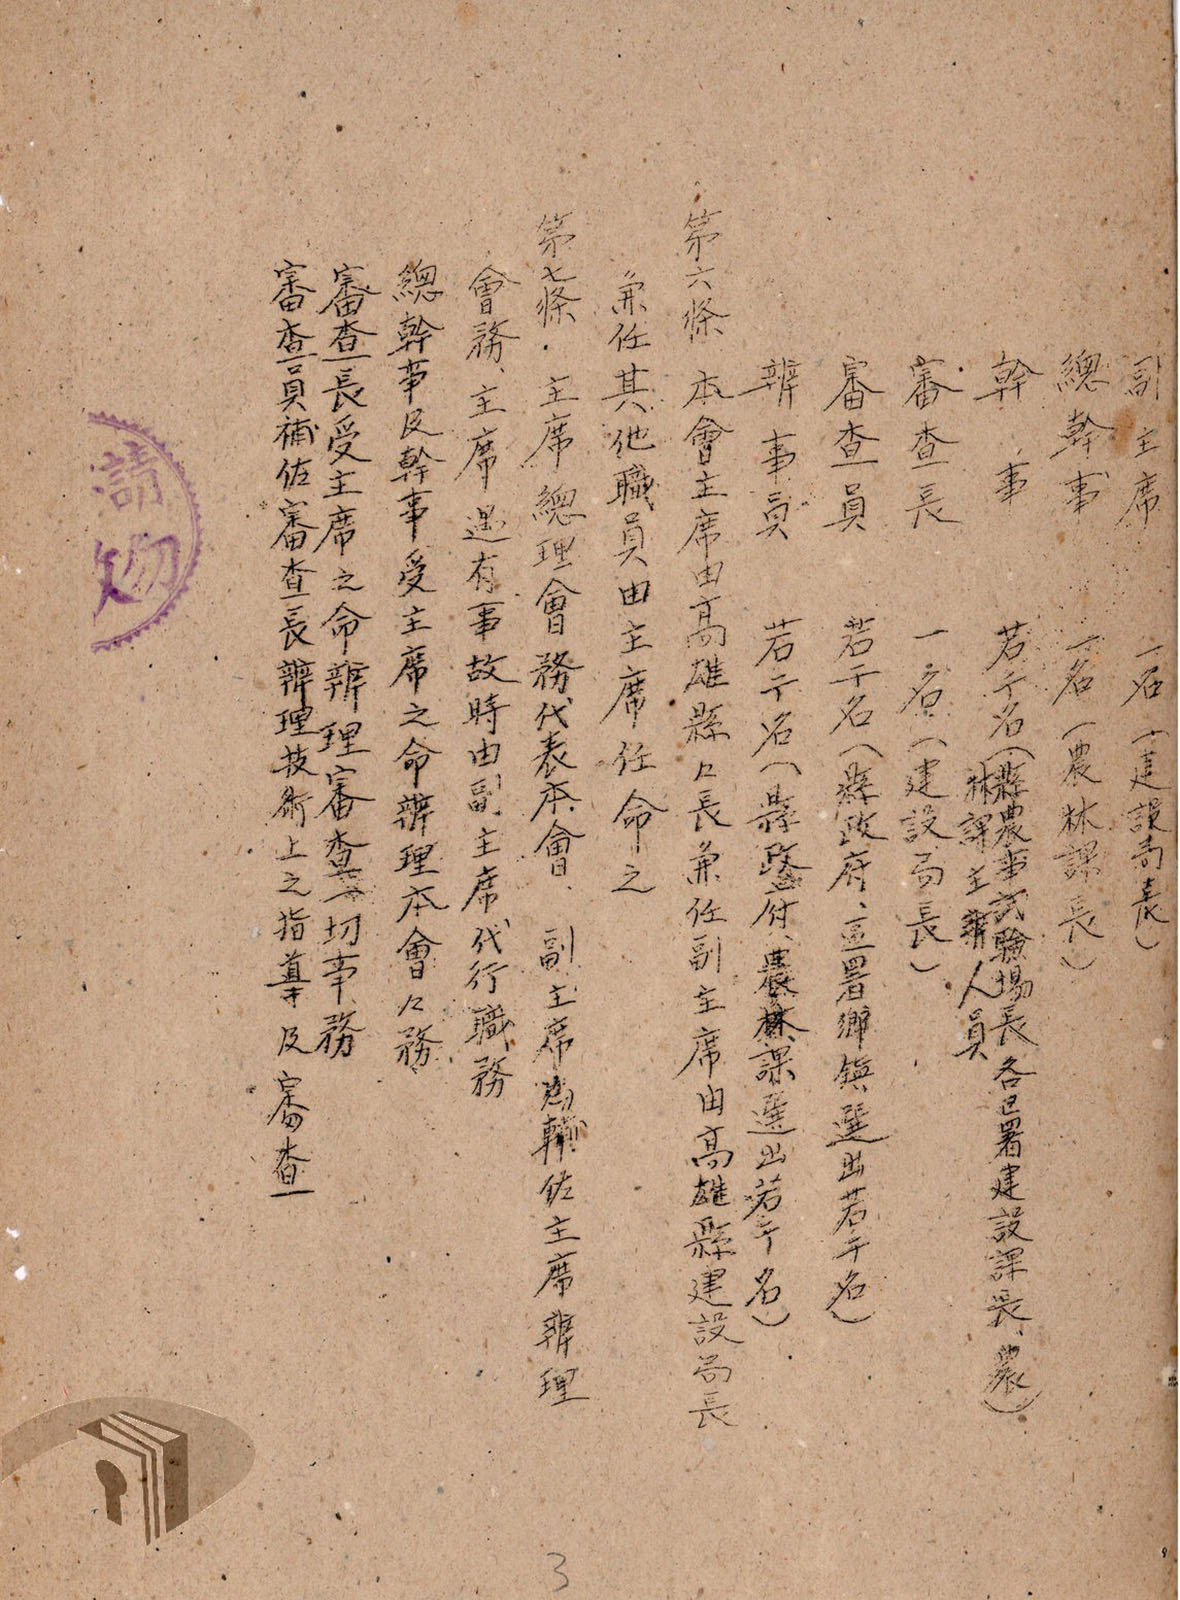 副主席　一名（建設局長）
總幹事　一名（農林課長）
幹事　若干名（縣農事試驗場長各区署建設課長、農
林課主辦人員）
審查長　一名（建設局長）
審查員　若干名（縣政府、區署鄉鎮選出若干名）
辦事員　若干名（縣政府、農林課選出若干名）
第六條　本會主席由高雄縣々長兼任副主席由高雄縣建設局長
兼任其他職員由主席任命之
第七條．主席總理會務代表本會、副主席為輔佐主席辦理
會務、主席遇有事故時由副主席代行職務
總幹事及幹事受主席之命辦理本會々務
審查長受主席之命辦理審查一切事務
審查員補佐審查長辦理技術上之指導及審查
請
物
3